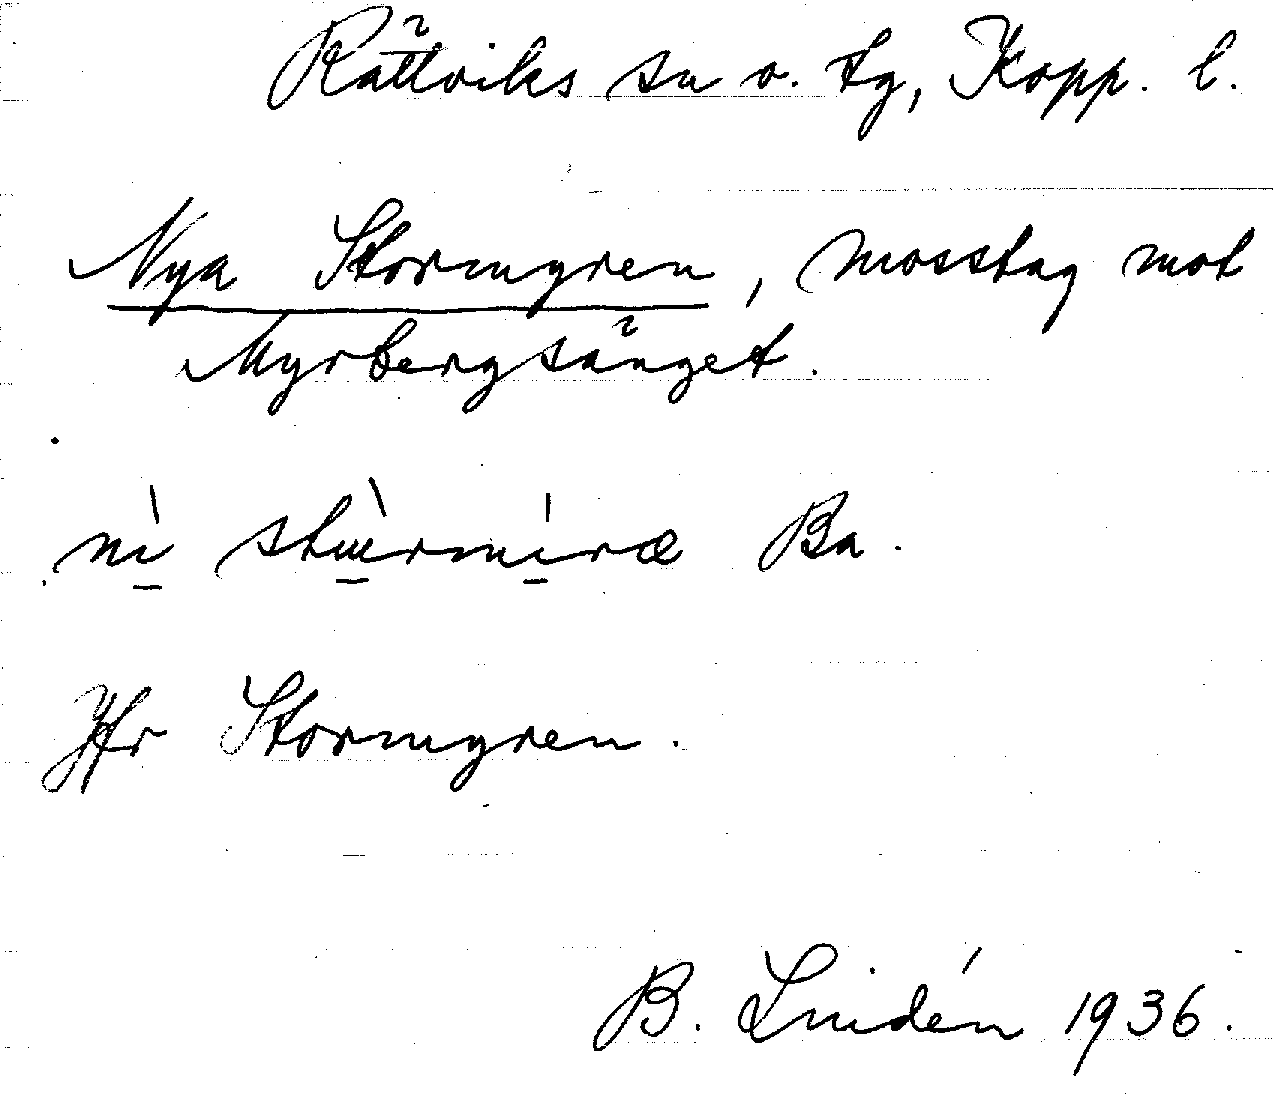 Rättviks sn o. tg, Kopp. l.
Nya Stormyren, mosstag mot
Myrbergsänget.
nì̱ stɯ̱̀rmì̱ræ Ba.
Jfr Stormyren.
B. Lindén 1936.